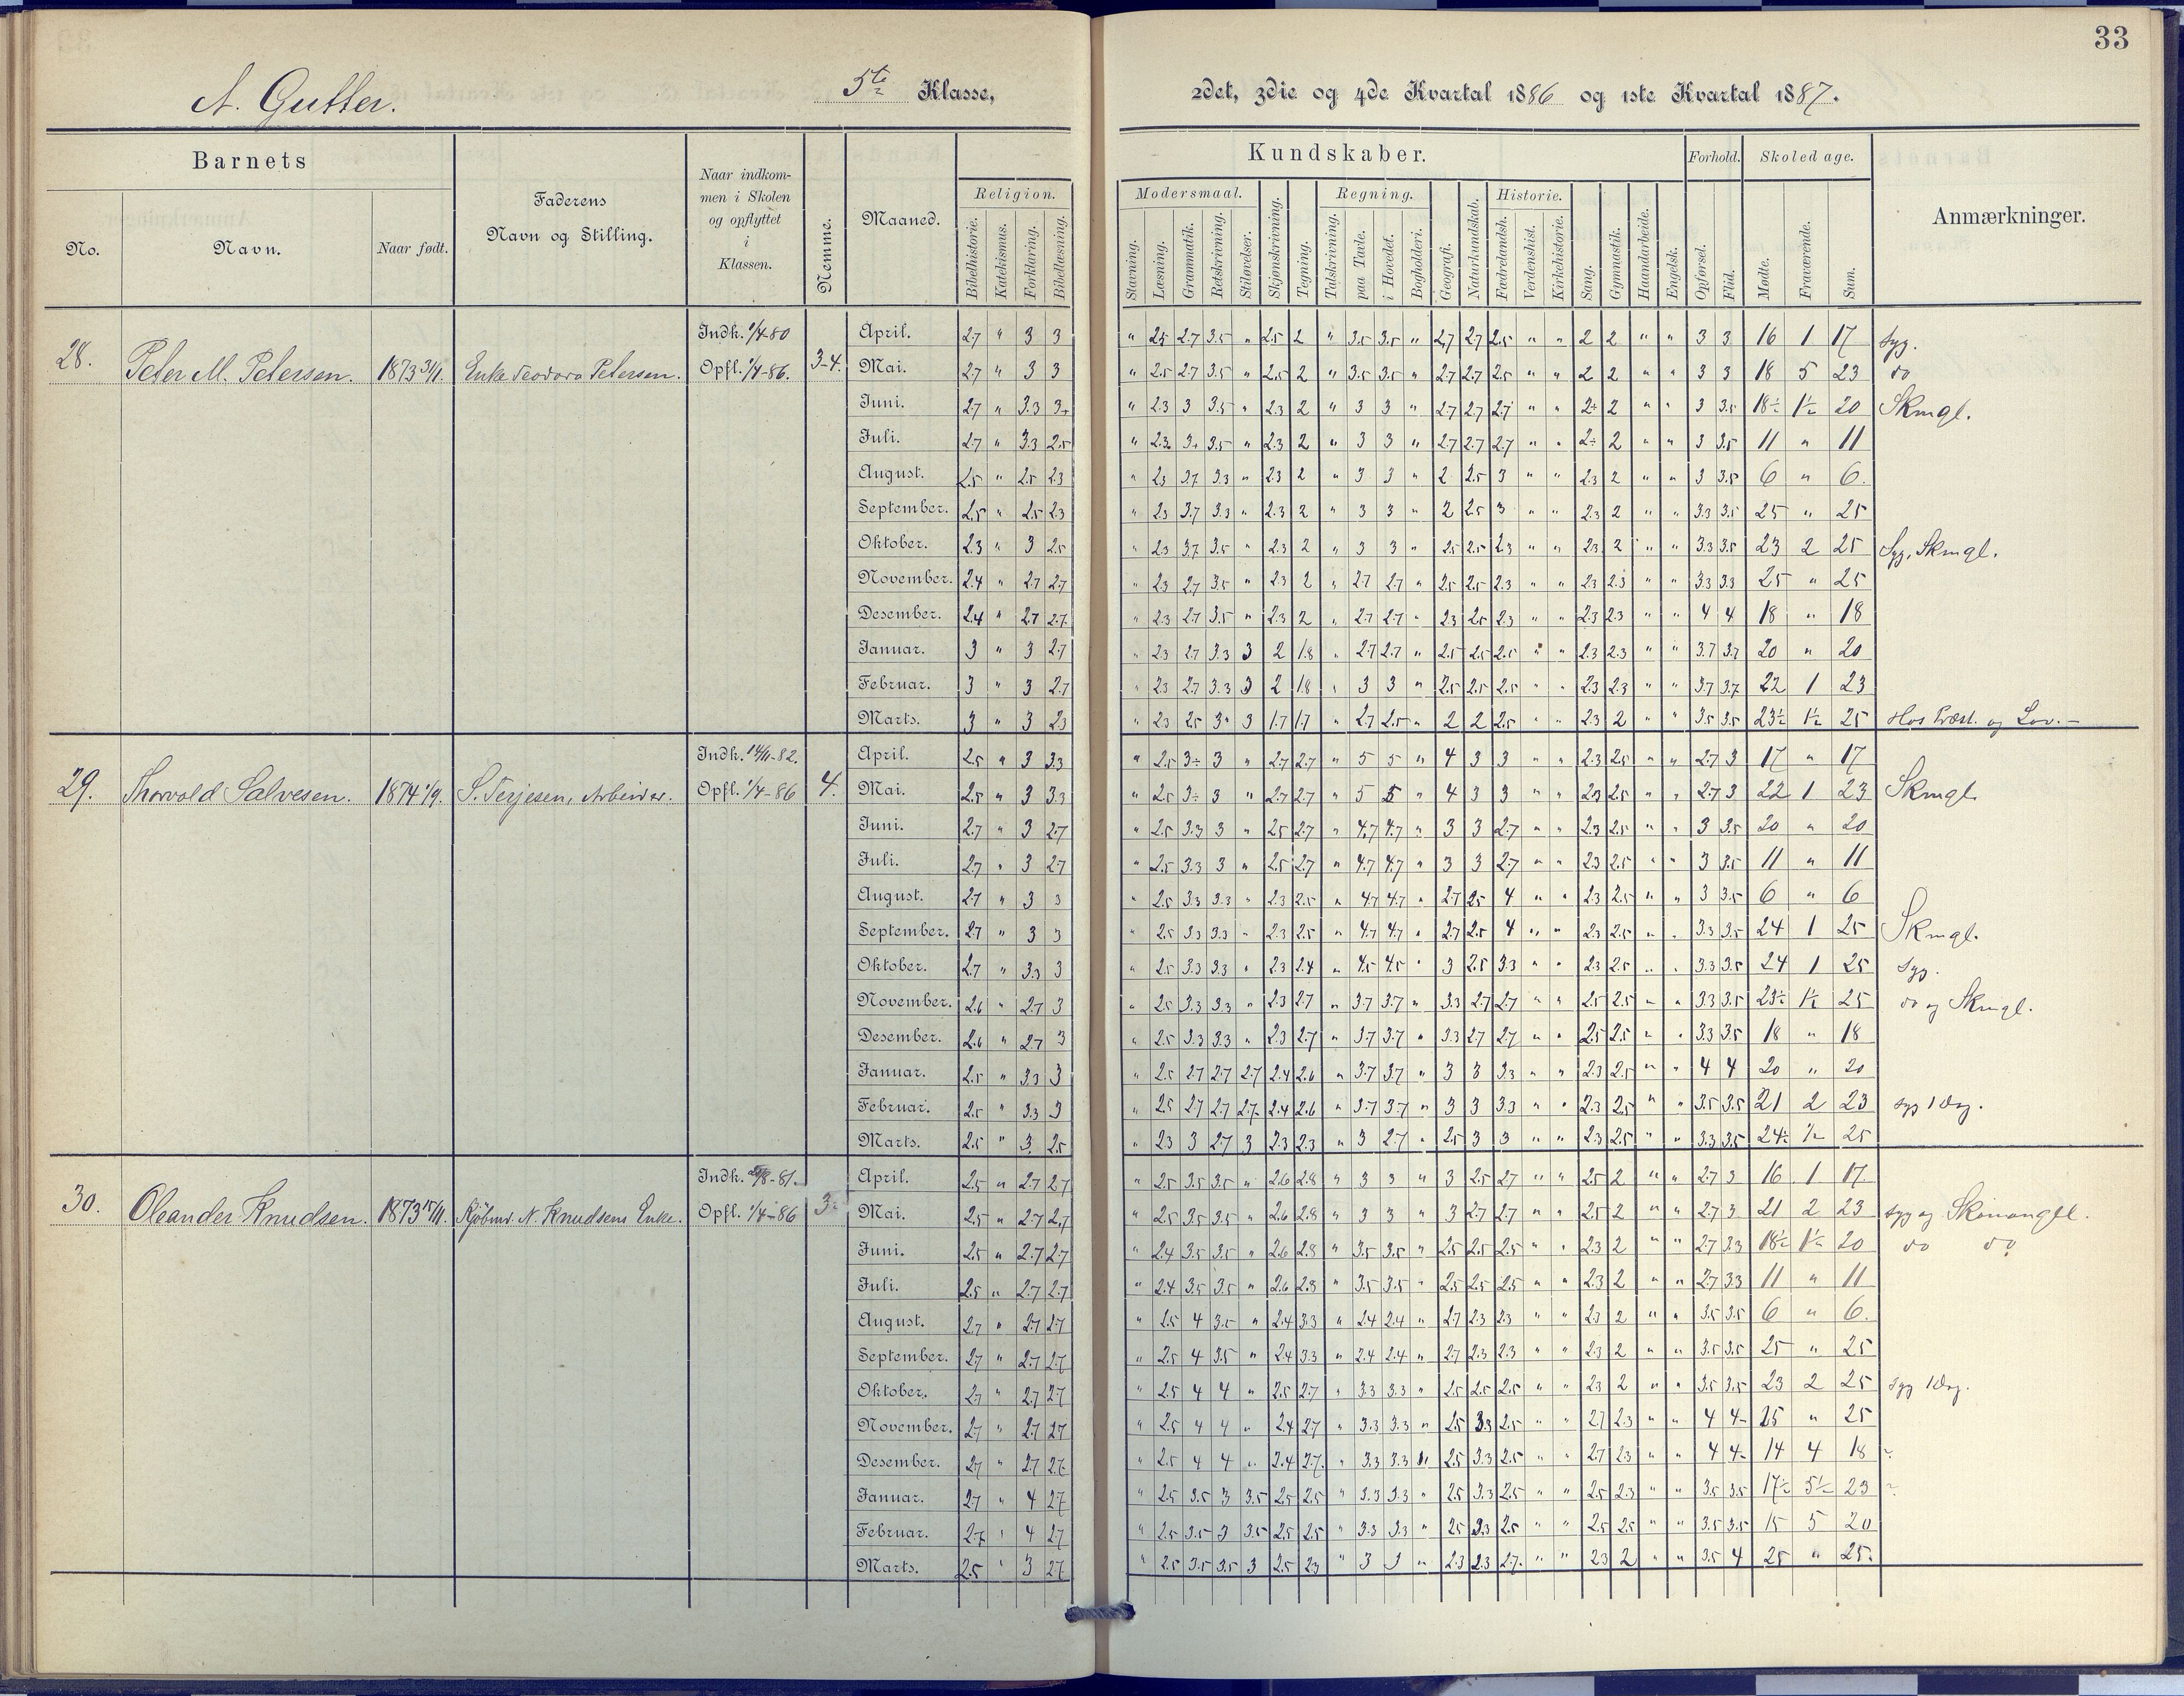 33
A. Gutter.
5te Klasse,
2det, 3die og 4de Kvartal 1886 og 1ste Kvartal 1887.
Barnets
Faderens
Navn og Stilling.
Naar indkom-
men i Skolen
og opflyttet
i
Klassen.
Nemme.
Maaned.
Kundskaber.
Forhold.
Skoledage.
Anmærkninger.
No.
Navn.
Naar født.
Religion.
Modersmaal.
Regning.
Historie.
Bibelhistorie.
Katekismus.
Forklaring.
Bibellæsning.
Stavning.
Læsning.
Grammatik.
Retskrivning.
Stiløvelser.
Skjønskrivning.
Tegning.
Talskrivning.
paa Tavle.
i Hovedet.
Bogholderi.
Geografi.
Naturkundskab.
Fædrelandsh.
Verdenshist.
Kirkehistorie.
Sang.
Gymnastik.
Haandarbeide.
Engelsk.
Opførsel.
Flid.
Mødte.
Fraværende.
Sum.
28. Peter M. Petersen. 1873 3/11. Enke Teodora Petersen. Indk. 1/4-80 Opfl. 1/4-86. 3-4.
April. 2.7 " 3 3 " 2.5 2.7 3.5 " 2.5 2 " 3.5 3.5 " 2.7 2.7 2.5 " " 2 2 " " 3 3 16 1 17 Syg.
Mai. 2.7 " 3 3 " 2.5 2.7 3.5 " 2.5 2 " 3.5 3.5 " 2.7 2.7 2.5 " " 2 2 " " 3 3 18 5 23 do
Juni. 2.7 " 3.3 3 " 2.3 3 3.5 " 2.3 2 " 3 3 " 2.7 2.7 2.7 " " 2 2 " " 3 3.5 18½ 1½ 20 Skmgl.
Juli. 2.7 " 3.3 2.5 " 2.3 3 3.5 " 2.3 2 " 3 3 " 2.7 2.7 2.7 " " 2 2 " " 3 3.5 11 " 11
August. 2.5 " 2.5 2.3 " 2.3 3.7 3.3 " 2.3 2 " 3 3 " 2 2.5 3 " " 2.3 2 " " 3 3.5 6 " 6.
September. 2.5 " 2.5 2.3 " 2.3 3.7 3.3 " 2.3 2 " 3 3 " 2 2.5 3 " " 2.3 2 " " 3.3 3.5 25 " 25
Oktober. 2.3 " 3 2.5 " 2.3 3.7 3.5 " 2.3 2 " 3 3 " 2.5 2.5 2.3 " " 2.3 2 " " 3.3 3.5 23 2 25 Syg, Skmgl.
November. 2.4 " 2.7 2.7 " 2.3 2.7 3.5 " 2.3 2 " 2.7 2.7 " 2.5 2.5 2.3 " " 2.3 2.3 " " 3.3 3.3 25 " 25
Desember. 2.4 " 2.7 2.7 " 2.3 2.7 3.5 " 2.3 2 " 2.7 2.7 " 2.3 2.5 2.3 " " 2.3 2.3 " " 4 4 18 " 18
Januar. 3 " 3 2.7 " 2.3 2.7 3.3 3 2 1.8 " 2.7 2.7 " 2.5 2.5 2.5 " " 2.3 2.3 " " 3.7 3.7 20 " 20
Februar. 3 " 3 2.7 " 2.3 2.7 3.3 3 2 1.8 " 3 3 " 2.5 2.5 2.5 " " 2.3 2.3 " " 3.7 3.7 22 1 23
Marts. 3 " 3 2.3 " 2.3 2.5 3 3 1.7 1.7 " 2.7 2.5 " 2 2 2.5 " " 2.3 2 " " 3.5 3.5 23½ 1½ 25 Hos Præst. og Lov.
29. Thorvald Salvesen. 1874 1/9. S. Terjesen, Arbeider. Indk. 14/11-82. Opfl. 1/4-86 4.
April. 2.5 " 3 3.3 " 2.5 3÷ 3 " 2.7 2.7 " 5 5 " 4 3 3 " " 2.3 2.5 " " 2.7 3 17 " 17
Mai. 2.5 " 3 3.3 " 2.5 3÷ 3 " 2.7 2.7 " 5 5 " 4 3 3 " " 2.3 2.5 " " 2.7 3 22 1 23 Skmgl.
Juni. 2.7 " 3 2.7 " 2.5 3.3 3 " 2.5 2.7 " 4.7 4.7 " 3 3 2.7 " " 2.3 2.5 " " 3 3.5 20 " 20
Juli. 2.7 " 3 2.7 " 2.5 3.3 3 " 2.5 2.7 " 4.7 4.7 " 3 3 2.7 " " 2.3 2.5 " " 3 3.5 11 " 11
August. 2.7 " 3 3 " 2.5 3.3 3.3 " 2.3 2.5 " 4.7 4.7 " 2.7 2.5 4 " " 2.3 2.5 " " 3 3.5 6 " 6
September. 2.7 " 3 3 " 2.5 3.3 3.3 " 2.3 2.5 " 4.7 4.7 " 2.7 2.5 4 " " 2.3 2.5 " " 3.3 3.5 24 1 25 Skmgl.
Oktober. 2.7 " 3.3 3 " 2.5 3.3 3.3 " 2.3 2.4 " 4.5 4.5 " 3 2.5 3.3 " " 2.3 2.5 " " 3.3 3.5 24 1 25 Syg.
November. 2.6 " 2.7 3 " 2.5 3.3 3.3 " 2.3 2.7 " 3.7 3.7 " 3.3 2.7 2.7 " " 2.5 2.5 " " 3.3 3.5 23½ 1½ 25 do og Skmgl.
Desember. 2.6 " 2.7 3 " 2.5 3.3 3.3 " 2.3 2.7 " 3.7 3.7 " 3.3 2.7 2.7 " " 2.5 2.5 " " 3.3 3.5 18 " 18
Januar. 2.5 " 3.3 3 " 2.5 2.7 2.7 2.7 2.4 2.6 " 3.7 3.7 " 3 3 3.3 " " 2.3 2.5 " " 4 4 20 " 20
Februar. 2.5 " 3.3 3 " 2.5 2.7 2.7 2.7 2.4 2.6 " 3.7 3.7 " 3 3 3.3 " " 2.3 2.5 " " 3.5 3.5 21 2 23 syg 1 Dag.
Marts. 2.5 " 3 2.5 " 2.3 3 2.7 3 2.3 2.3 " 3 2.7 " 2.5 3 3 " " 2.3 2.5 " " 3.3 3.5 24½ ½ 25
30. Oleander Knudsen. 1873 15/11. Kjöbmd. N. Knudsens Enke. Indk. /8-81. Opfl. 1/4-86 3÷
April. 2.5 " 2.7 2.7 " 2.5 3.5 3.5 " 2.6 2.8 " 3 3 " 3 2.5 2.7 " " 2.5 2 " " 2.7 3 16 1 17.
Mai. 2.5 " 2.7 2.7 " 2.5 3.5 3.5 " 2.6 2.8 " 3 3 " 3 2.7 2.7 " " 2.5 2 " " 2.7 3 21 2 23 syg og Skomangel.
Juni. 2.5 " 2.7 2.7 " 2.4 3.5 3.5 " 2.6 2.8 " 3.5 3.5 " 2.5 2.5 2.5 " " 2.3 2 " " 2.7 3.3 18½ 1½ 20 do do
Juli. 2.5 " 2.7 2.7 " 2.4 3.5 3.5 " 2.6 2.8 " 3.5 3.5 " 2.5 2.5 2.5 " " 2.3 2 " " 2.7 3.3 11 " 11
August. 2.7 " 2.7 2.7 " 2.5 4 3.5 " 2.4 3.3 " 2.4 2.4 " 2.7 2.3 2.3 " " 2.3 2 " " 3.5 3.5 6 " 6.
September. 2.7 " 2.7 2.7 " 2.5 4 3.5 " 2.4 3.3 " 2.4 2.4 " 2.7 2.3 2.3 " " 2.3 2 " " 3.5 3.5 25 " 25
Oktober. 2.7 " 2.7 2.7 " 2.5 4 4 " 2.5 2.7 " 3.3 3.3 " 2.5 2.5 2.5 " " 2.3 2 " " 3.5 3.5 23 2 25 syg 1 Dag.
November. 2.7 " 2.7 2.7 " 2.5 4 4 " 2.4 2.7 " 3.3 3.3 " 2.5 3.3 2.5 " " 2.7 2.3 " " 4 4- 25 " 25
Desember. 2.7 " 2.7 2.7 " 2.5 4 4 " 2.4 2.7 " 3.3 3.3 " 2.5 3.3 2.5 " " 2.7 2.3 " " 4 4- 14 4 18 ?
Januar. 2.7 " 4 2.7 " 2.5 3.5 3 3.5 2.5 2.5 " 3.3 3.3 " 2.5 3.3 2.5 " " 2.5 2.3 " " 3.5 3.5 17½ 5½ 23 ?
Februar. 2.7 " 4 2.7 " 2.5 3.5 3 3.5 2.5 2.5 " 3.3 3.3 " 2.5 3.3 2.5 " " 2.5 2.5 " " 3.5 3.5 15 5 20
Marts. 2.5 " 3 2.7 " 2.5 3.5 3.5 3 2.5 2.3 " 3 3 " 2.3 2.3 2.7 " " 2.3 2 " " 3.5 4 25 " 25.